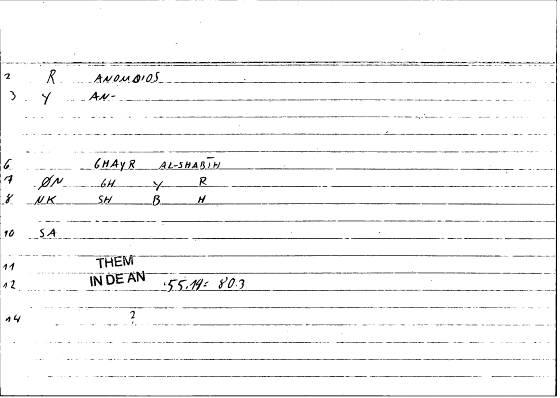 2 R ANOMOIOS
3 Y AN-
6 GHAYR AL-SHABĪH
7 ØN GH Y R
8 NK SH B H
10 SA
11 THEM
12 IN DE AN .55.14= 80.3
14 2